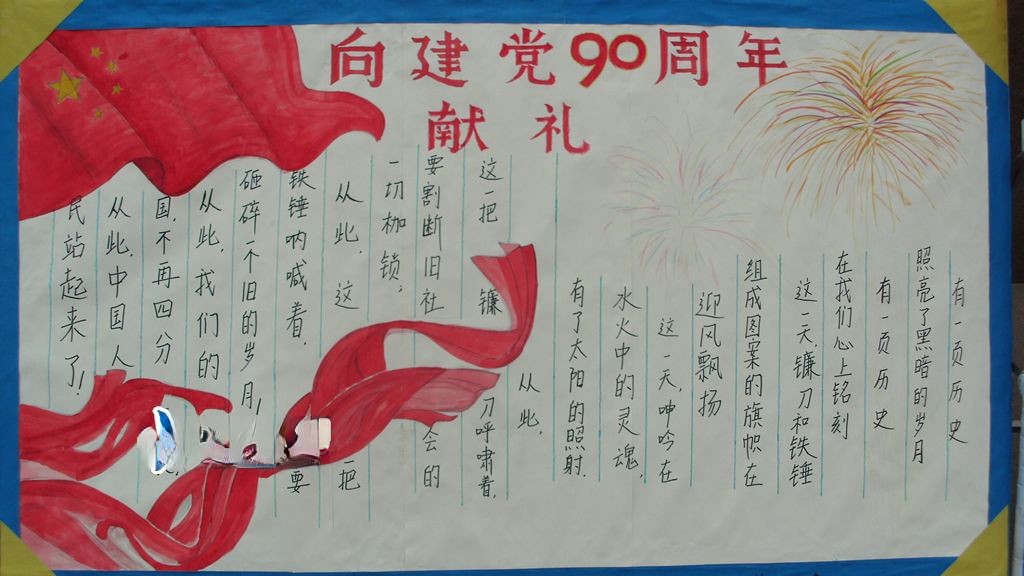 向建党90周年
献礼
有一页历史
照亮了黑暗的岁月
有一页历史
在我们心上铭刻
这一天,镰刀和铁锤
组成图案的旗帜在
迎风飘扬
这一天,呻吟在
水火中的灵魂,
有了太阳的照射.
从此,
这一把镰刀呼啸着,
要割断旧社会的
一切枷锁;
从此,这一把
铁锤呐喊着,要
砸碎一个旧的岁月!
从此,我们的
国,不再四分
从此,中国人
民站起来了!